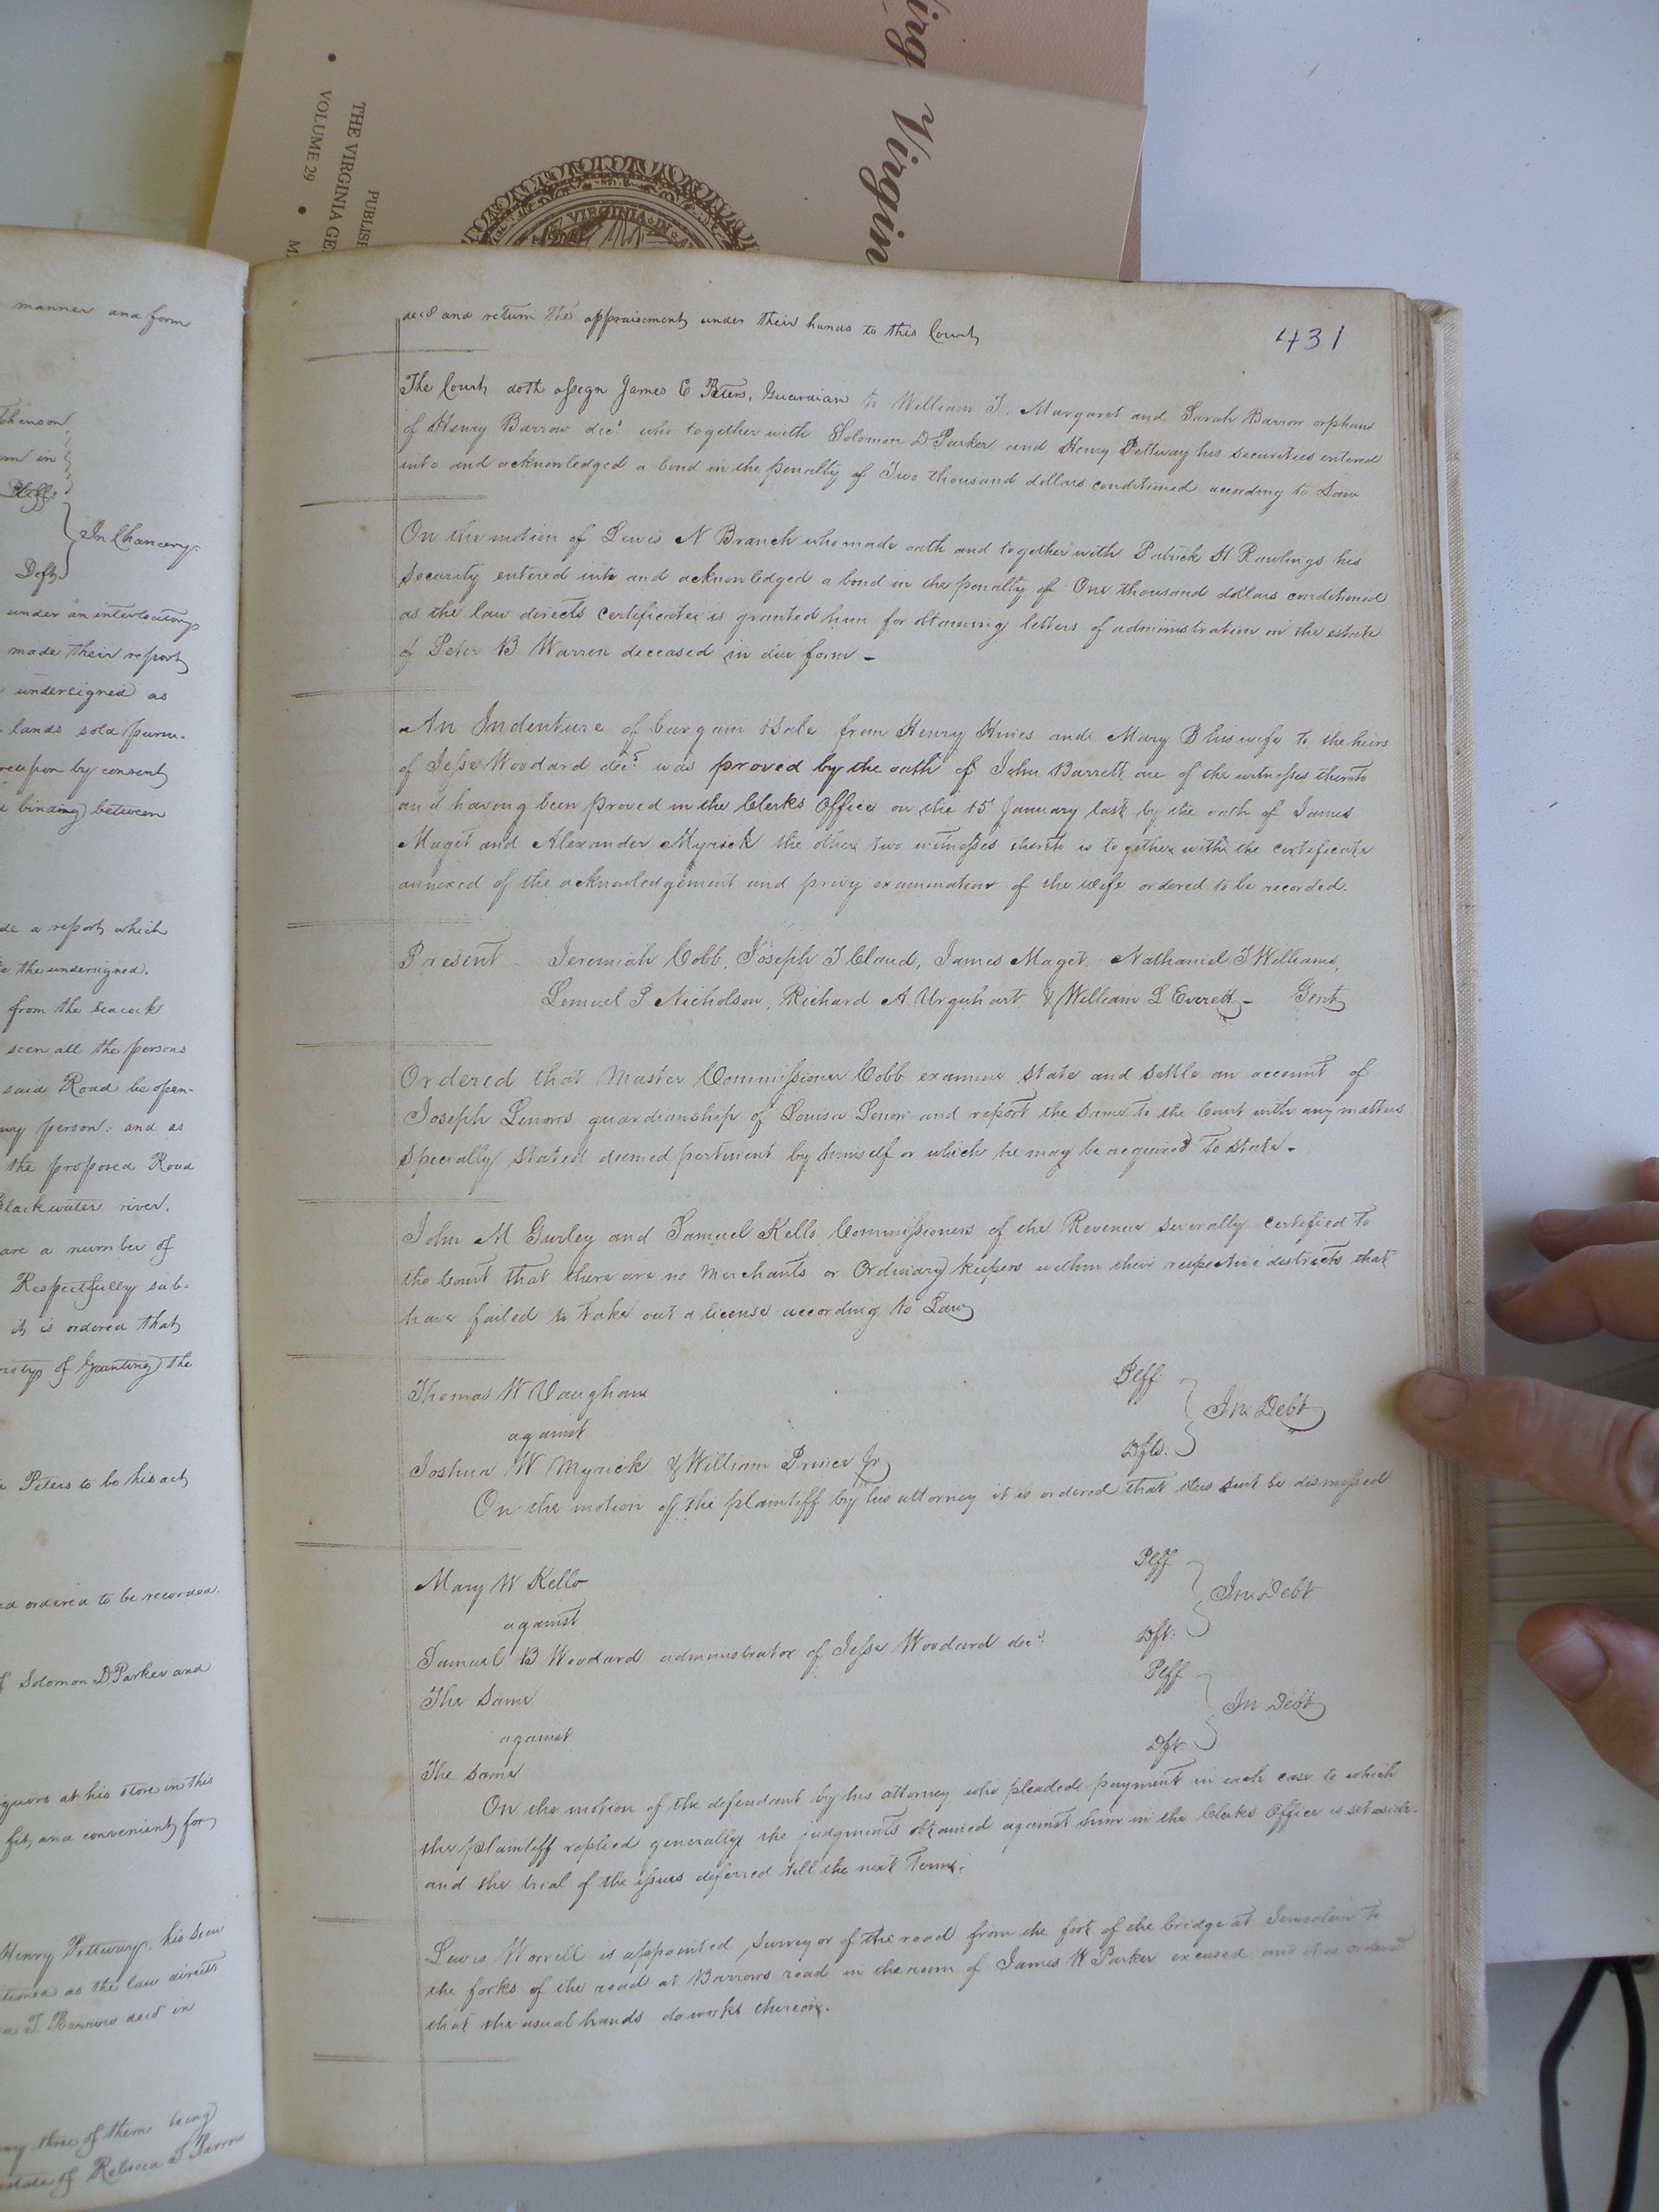 Virgin
THE VIRGINIA GE
VOLUME 29 • M
PUBLIS
VIRGINIA
manner and form
Pltffs
In Chancery
Deft
under an interlocutory
made their report
undersigned as
lands sold
by consent
binding between
de a report which
the undersigned.
from the seacock
seen all the persons
said Road be open-
person: and as
the proposed Road
Blackwater river.
are a number of
Respectfully sub-
it is ordered that
of Granting the
Peters to be his act
ordered to be recorded.
Solomon D Parker and
at his store in this
fit, and convenient for
Henry Pettway, his secu
as the law directs
T. Barrow decd in
three of them being
estate of Rebecca T Barrow
431
decd and return the appraisement under their hands to this Court
The Court doth assign James C Peters, Guardian to William T. Margaret and Sarah Barrow orphans
of Henry Barrow decd who together with Solomon D Parker and Henry Pettway his securities entered
into and acknowledged a bond in the penalty of Two thousand dollars conditioned according to Law
On the motion of Lewis N Branch who made oath and together with Patrick H Rawlings his
Security entered into and acknowledged a bond in the penalty of One thousand dollars conditioned
as the law directs certificate is granted him for obtaining letters of administration on the estate
of Peter B Warren deceased in due form -
An Indenture of bargain & Sale from Henry Hines and Mary B his wife to the heirs
of Jesse Woodard decd was proved by the oath of John Barrett one of the witnesses thereto
and having been proved in the Clerks Office on the 15 January last by the oath of James
Maget and Alexander Myrick the other two witnesses thereto is together with the certificate
annexed of the acknowledgement and privy examination of the wife ordered to be recorded.
Present - Jeremiah Cobb, Joseph T Claud, James Maget, Nathaniel T Williams,
Lemuel J Nicholson, Richard A Urquhart & William L Everett - Gent
Ordered that Master Commissioner Cobb examine state and settle an account of
Joseph Lenows guardianship of Louisa Lenow and report the same to the Court with any matters
specially stated deemed pertinent by himself or which he may be required to state -
John M Gurley and Samuel Kello Commissioners of the Revenue severally certified to
the Court that there are no Merchants or Ordinary keepers within their respective districts that
have failed to take out a license according to Law
Thomas W Vaughan Plff
against In Debt
Joshua W Myrick & William Prince Jr Dfts.
On the motion of the plaintiff by his attorney it is ordered that this suit be dismissed
Mary W Kello Plff
against In Debt
Samuel B Woodard administrator of Jesse Woodard decd. Dft.
The Same Plff
against In Debt
The Same Dft.
On the motion of the defendant by his attorney who pleaded payment in each case to which
the plaintiff replied generally the judgments obtained against him in the Clerks Office is set aside
and the trial of the issues deferred till the next Term.
Lewis Worrell is appointed surveyor of the road from the foot of the bridge at Jerusalem to
the forks of the road at Barrows road in the room of James W Parker excused and it is ordered
that the usual hands do work thereon.